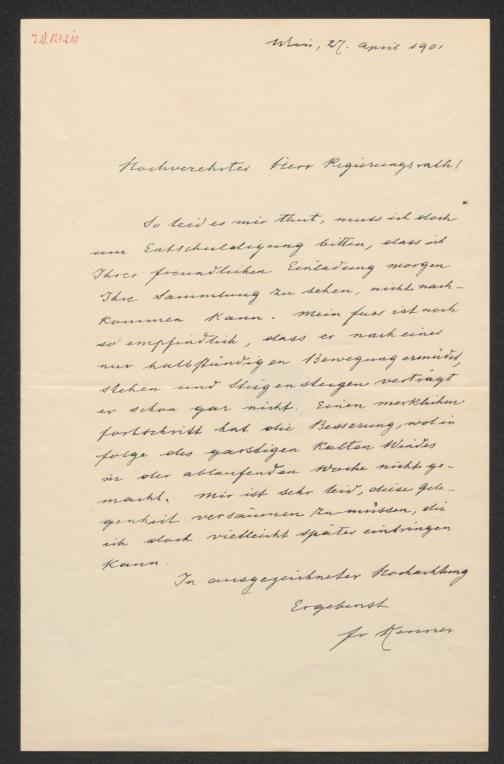 I.N. 129.210
Wien, 27. April 1901
Hochverehrter Herr Regierungsrath!
So leid es mir thut, muss ich doch
um Entschuldigung bitten, dass ich
Ihrer freundlichen Einladung morgen
Ihre Sammlung zu sehen, nicht nach-
kommen kann. Mein Fuss ist noch
so empfindlich, dass er nach einer
nur halbstündigen Bewegung ermüdet,
stehen und Stiegen steigen verträgt
er schon gar nicht. Einen merklichen
Fortschritt hat die Besserung, wol in
folge des garstigen kalten Windes
in der ablaufenden Woche nicht ge-
macht. Mir ist sehr leid, diese Gele-
genheit versäumen zu müssen, die
ich doch vielleicht später einbringen
kann.
In ausgezeichneter Hochachtung
Ergebenst
Fr Kenner